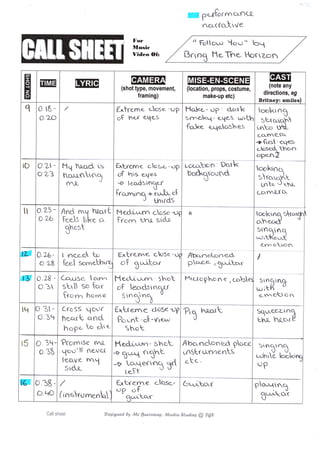 performance
narrative
CALL SHEET
For
Music
Video 06
"Follow You" by
Bring Me The Horizon
TIME
LYRIC
CAMERA
(shot type, movement,
framing)
MISE-EN-SCENE
(location, props, costume,
make-up etc)
CAST
(note any
directions, eg
Britney: smiles)
9
0.18-
0.20
/
Extreme close-up
of her eyes
Make-up dark
smokey eyes with
fake eyelashes
looking
straight
into the
camera
→ first eyes
closed then
open
10
0.21-
0.23
My head is
haunting
me
Extreme close-up
of his eyes
→ leadsinger
Framing → rule of
thirds
Location: Dark
background
looking
straight
into the
camera
11
0.23-
0.26
And my heart
feels like a
ghost
Medium close-up
from the side
looking straight
ahead
singing
without
emotion
12
0.26-
0.28
I need to
feel something
Extreme close-up
of guitar
Abandoned
place, guitar
/
13
0.28-
0.31
Cause I am
still so far
from home
Medium shot
of leadsinger
singing
Microphone, cables
singing
with
emotion
14
0.31-
0.34
Cross your
heart and
hope to die
Extreme close-up
Point-of-view
shot
Pig heart
Squeezing
the heart
15
0.34-
0.38
Promise me
you'll never
leave my
side
Medium-shot
→ guy right
→ layering girl
left
Abandoned place
instruments
etc.
singing
while looking
up
16
0.38-
0.40
/
(instrumental)
Extreme close-
up of
guitar
Guitar
playing
guitar
Call sheet